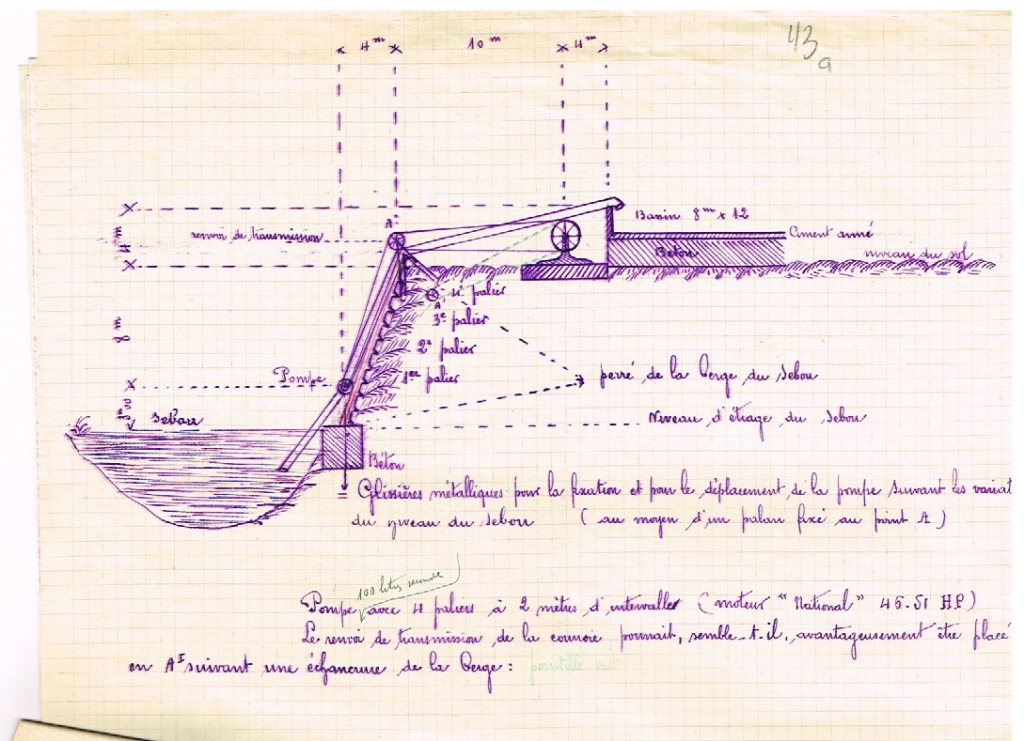 43
a
4 m 10 m 4 m
A
Bassin 8 m x 12
Ciment armé
renvoi de transmission
Béton
niveau du sol
4 m
4e palier
A
3e palier
8 m
2e palier
Pompe
1er palier
perré de la berge du Sebou
Sebou
Niveau d'étiage du Sebou
Béton
Glissières métalliques pour la fixation et pour le déplacement de la pompe suivant les variat
du niveau du Sebou (au moyen d'un palan fixé au point A)
100 litres seconde
Pompe avec 4 paliers à 2 mètres d'intervalles (moteur "National" 45-51 HP)
Le renvoi de transmission de la courroie pourrait, semble-t-il, avantageusement être placé
en A' suivant une échancrure de la berge: pointillé vert